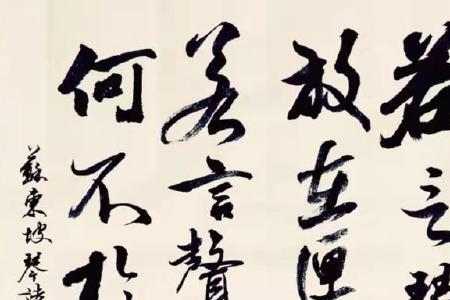 若言琴
放在匣
若言聲
何不於
蘇東坡琴詩